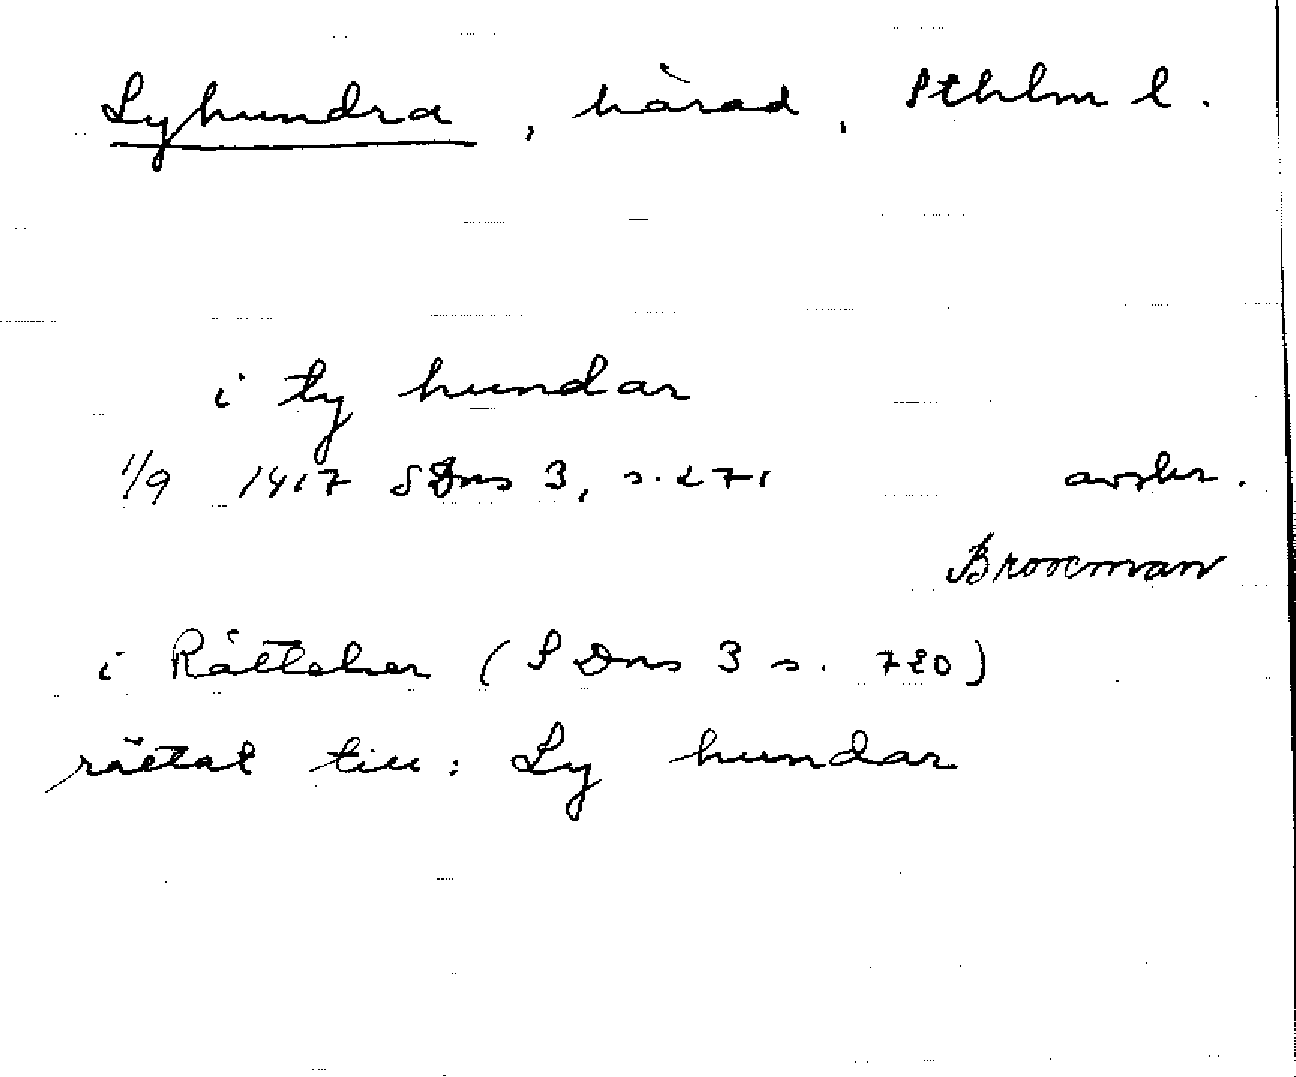 Lyhundra, härad, Sthlm l.
i ty hundar
1/9 1417 SDns 3, s. 271 avskr.
Brooeman
i Rättelser (SDns 3 s. 720)
rättat till: Ly hundar